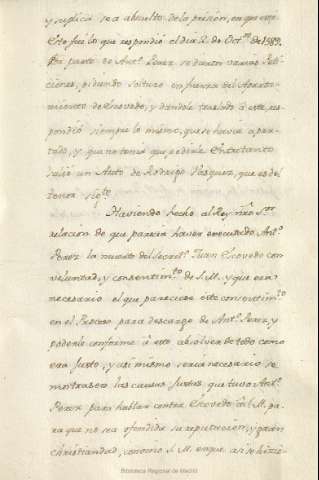 y suplicó sea absuelto de la prision, en que esta.
Esto fue lo que respondió el dia 2. de Oct.re de 1589.
Por parte de Ant.o Perez se dieron varias Peti-
ciones, pidiendo soltura en fuerza del Aparta-
miento de Escovedo, y dandole traslado à este res-
pondió siempre lo mismo, que se havia apar-
tado, y que no tenia que pedirle. Entretanto
salió un Auto de Rodrigo Vazquez, que es del
tenor sig.te
Haviendo hecho al Rey nro S.or
relacion de que parecia haver executado Ant.o
Perez la muerte del Secret.o Juan Escovedo con
voluntad, y consentim.to de S.M. y que era
necesario el que pareciese este consentim.to
en el Proceso para descargo de Ant.o Perez, y
poderle conforme à esto absolver de todo como
era justo, y asi mismo seria necesario se
mostrasen las causas justas que tuvo Ant.o
Perez para hablar contra Escovedo à S.M. pa-
ra que no sea ofendida su reputacion, y gran
christiandad, como no S.M. en que asi se hicie-
Biblioteca Regional de Madrid